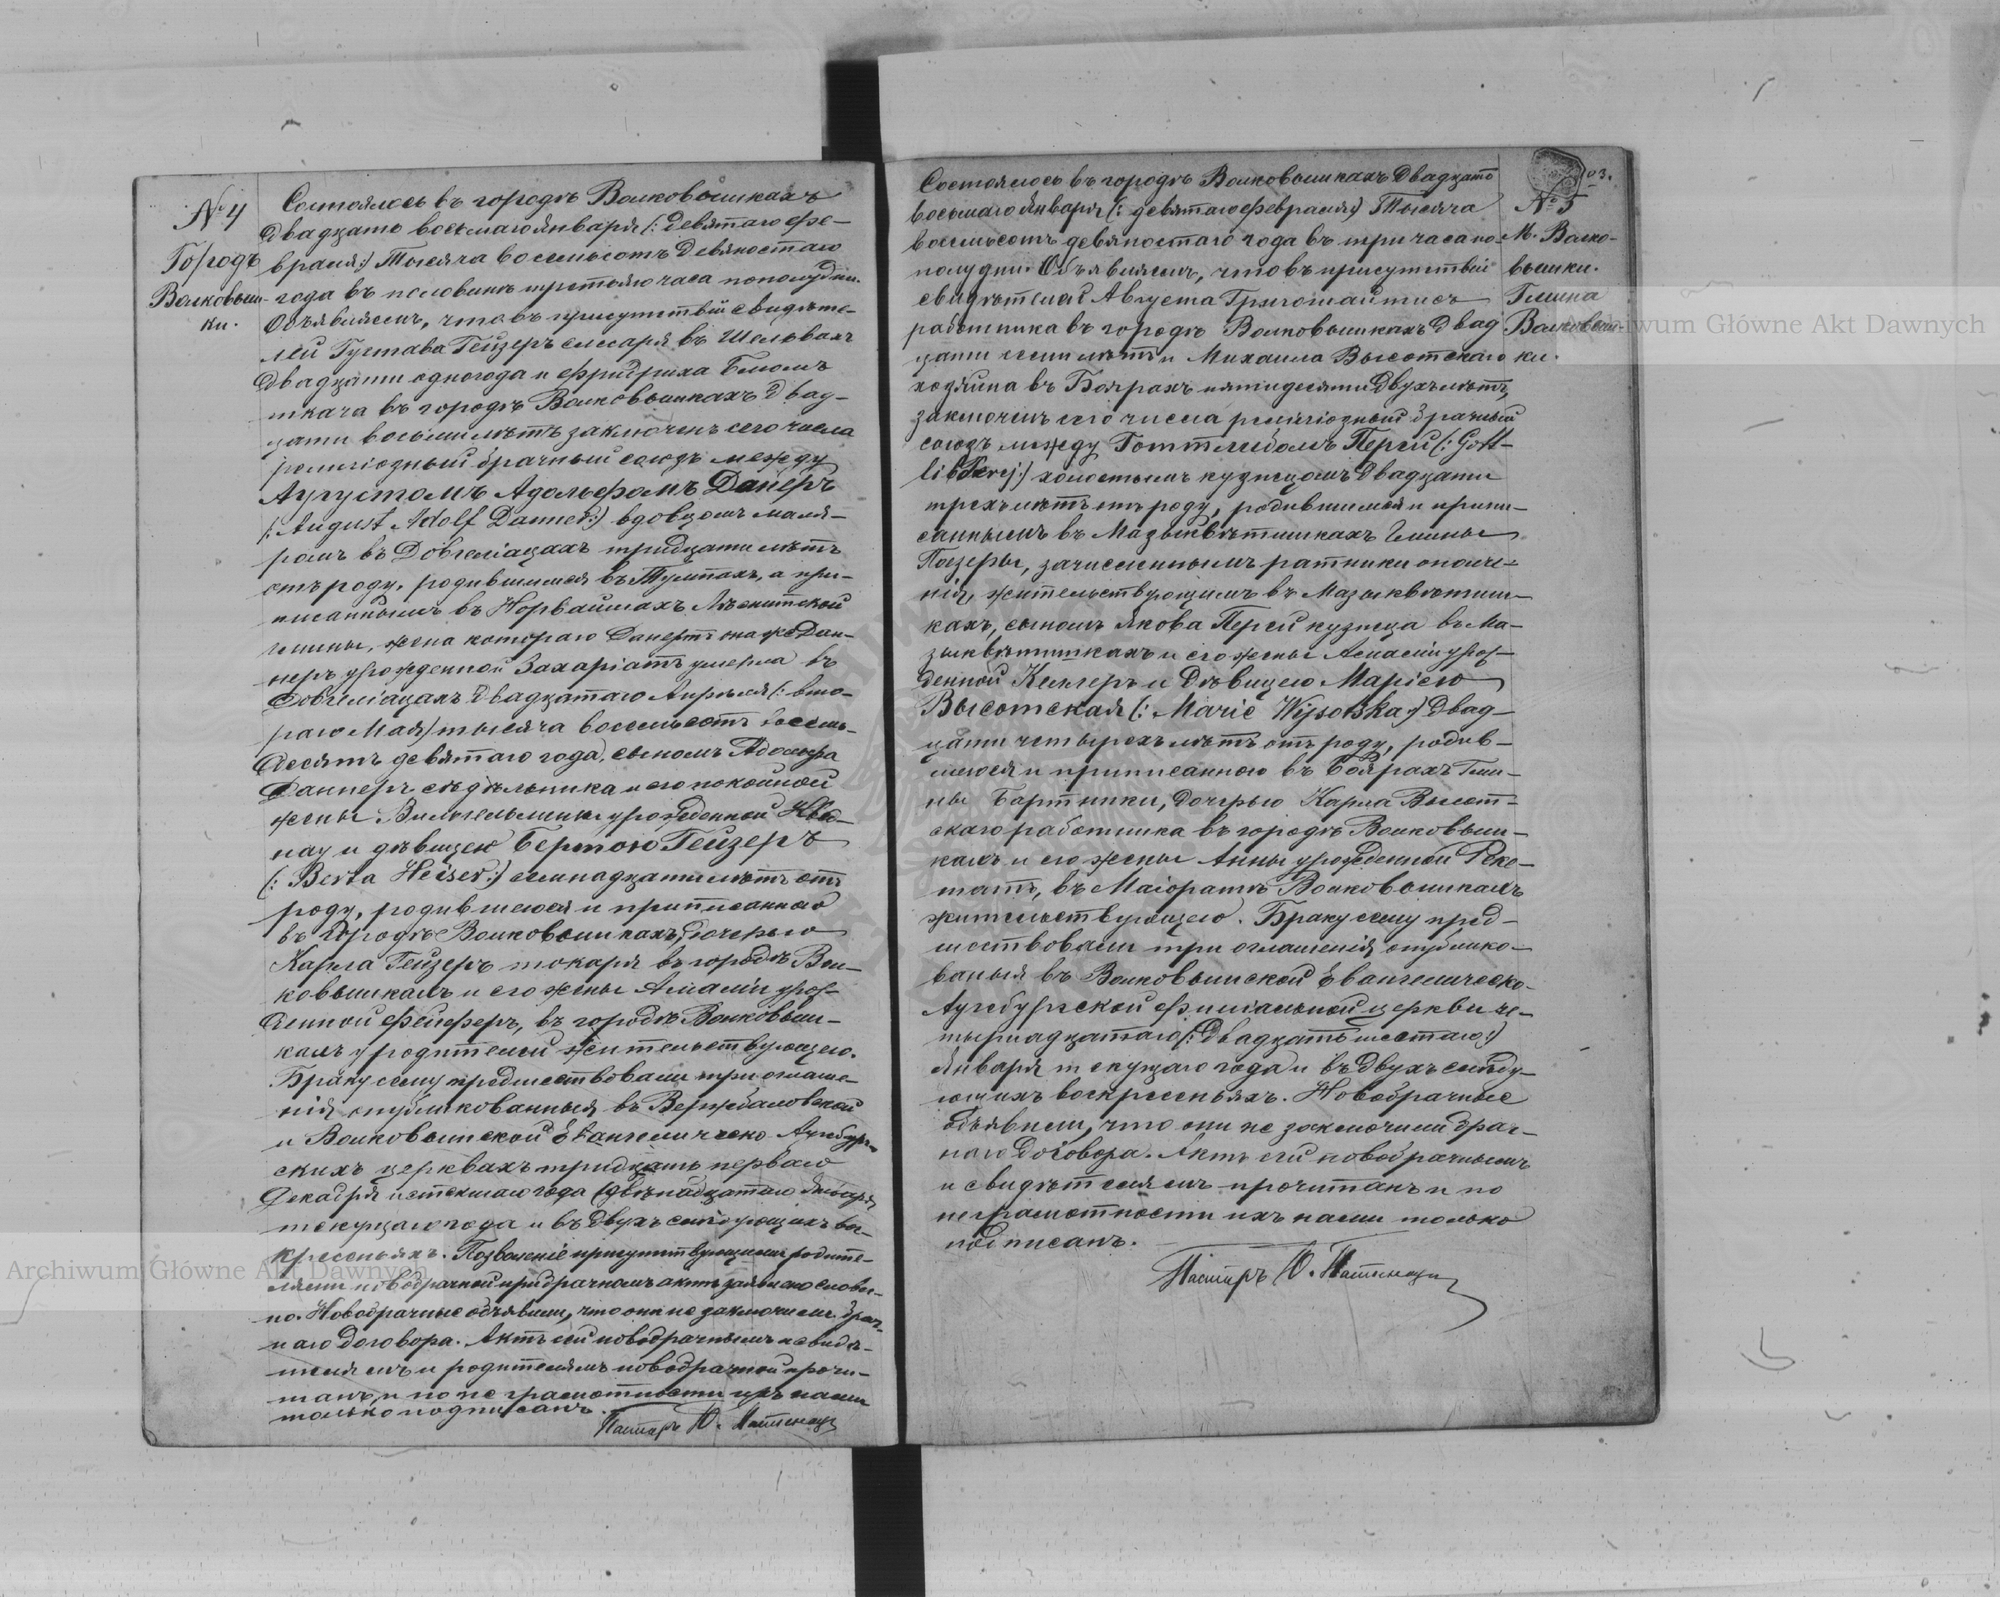 № 4
Городъ
Волковыш-
ки.
Состоялось въ городѣ Волковышкахъ
двадцать восьмаго Января (: девятаго Фе-
враля:) Тысяча восемьсотъ девяностаго
года въ половинѣ третьяго часа пополудни.
Объявляемъ, что въ присутствіи свидѣте-
лей Густава Гейзеръ слесаря въ Шельвахъ
двадцати одного года и Фридриха Блюмъ
ткача въ городѣ Волковышкахъ двад-
цати восьми лѣтъ заключенъ сего числа
религіозный брачный союзъ между
Аугустомъ Адольфомъ Данеръ
(: August Adolf Danner:) вдовцомъ маля-
ромъ въ Довгеліацахъ тридцати лѣтъ
отъ роду, родившимся въ Тумпахъ, а при-
писаннымъ въ Норвайшахъ
гмины, жена котораго Данертъ она же Дан-
неръ урожденной Захаріатъ умерла въ
Довгеліацахъ двадцатаго Апрѣля (: вто-
раго Мая) тысяча восемьсотъ восемь-
десятъ девятаго года, сыномъ Адольфа
Даннеръ сѣдѣльника и его покойной
жены Вильгельмины урожденной
нау и дѣвицею Бертою Гейзеръ
(: Berta Heiser:) семнадцати лѣтъ отъ
роду, родившеюся и приписанною
въ городѣ Волковышкахъ, дочерью
Карла Гейзеръ токаря въ городѣ Вол-
ковышкахъ и его жены Амаліи урож-
денной Фейферъ, въ городѣ Волковыш-
кахъ у родителей жительствующею.
Браку сему предшествовали три оглаше-
нія опубликованныя въ Вержболовской
и Волковышской Евангелическо Аугсбург-
скихъ церквахъ тридцать перваго
Декабря истекшаго года (двѣнадцатаго Января)
текущаго года и въ двухъ слѣдующихъ вос-
кресеньяхъ. Позволеніе присутствующими родите-
лями новобрачной при брачномъ актѣ заявлено словес-
но. Новобрачные объявили, что они не заключили брач-
наго договора. Актъ сей новобрачнымъ и свидѣ-
телямъ и родителямъ новобрачной прочи-
танъ, и по неграмотности ихъ нами
только подписанъ.
Пасторъ Ю.
03.
№ 5
М. Волко-
вышки.
Гмина
Волковыш-
ки.
Состоялось въ городѣ Волковышкахъ двадцать
восьмаго Января (: девятаго Февраля:) Тысяча
восемьсотъ девяностаго года въ три часа по-
полудни. Объявляемъ, что въ присутствіи
свидѣтелей Августа Григошайтисъ
работника въ городѣ Волковышкахъ двад
цати семи лѣтъ и Михаила Высотскаго
хозяина въ Боярахъ пятидесяти двухъ лѣтъ,
заключенъ сего числа религіозный брачный
союзъ между Готтлибомъ Перей (: Gott-
lib Perej:) холостымъ кузнецомъ двадцати
трехъ лѣтъ отъ роду, родившимся и припи-
саннымъ въ Мазыквѣтишкахъ гмины
Поезеры, зачисленнымъ ратники ополче-
нія, жительствующимъ въ Мазыквѣтиш-
кахъ, сыномъ Якова Перей кузнеца въ Ма-
зыквѣтишкахъ и его жены Амаліи урож-
денной Кенгеръ и дѣвицею Маріею
Высотская (: Marie Wysotzka:) двад-
цати четырехъ лѣтъ отъ роду, родив-
шеюся и приписанною въ Боярахъ Гми-
ны Бартники, дочерью Карла Высот-
скаго работника въ городѣ Волковыш-
кахъ и его жены Анны урожденной Реке-
татъ, въ Маіоратѣ Волковышкахъ
жительствующею. Браку сему пред-
шествовали три оглашенія опублико-
ваныя въ Волковышской Евангелическо-
Аугсбургской филіальной церкви че-
тырнадцатаго (: двадцать шестаго:)
Января текущаго года и въ двухъ слѣду-
ющихъ воскресеньяхъ. Новобрачные
объявили, что они не заключили брач-
наго договора. Актъ сей новобрачнымъ
и свидѣтелямъ прочитанъ и по
неграмотности ихъ нами только
подписанъ.
Пасторъ Ю.
Archiwum Główne Akt Dawnych
Archiwum Główne Akt Dawnych